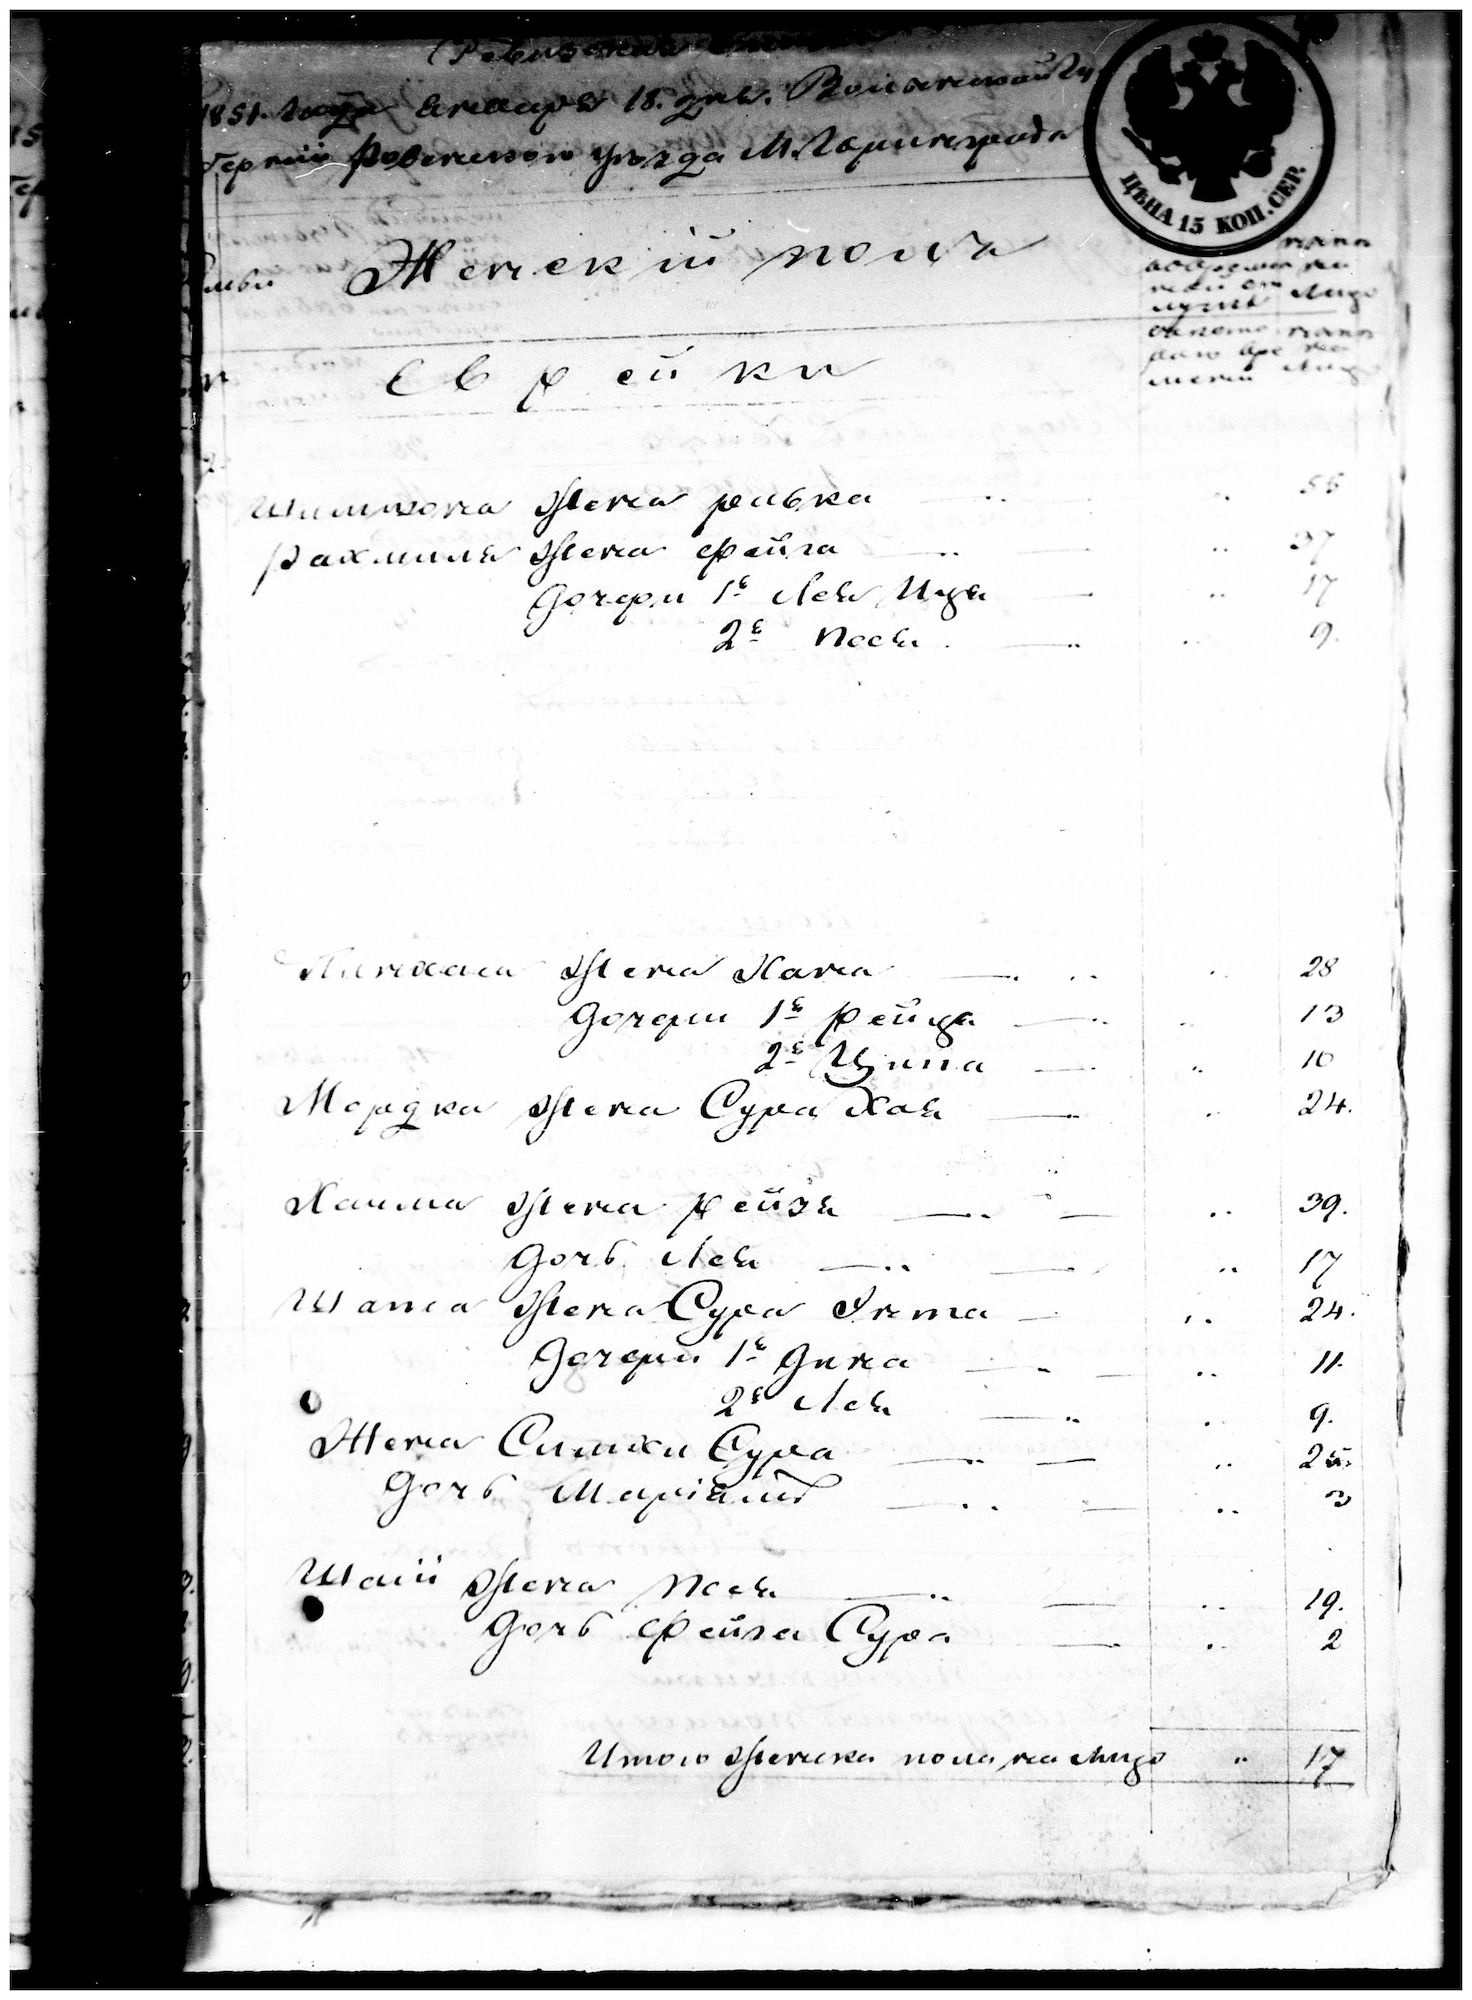 Ревизская
1851. Года Генваря 18. дня. Волынской Гу
берніи Ровенскаго уѣзда М. Горынграда
ЦѢНА 15 КОП. СЕР.
Женскій полъ
Еврейки
Шимшона жена Ривка 55
Рахмиля жена Фейга 37
Дочери 1я Лея Ида 17
2я Песя 9.
Пинхаса жена Хана 28
Дочери 1я Рейца 13
2я Ципа 10
Мордка жена Сура Хая 24.
Хаима жена Рейзя 39.
Дочь Лея 17
Шапса жена Сура Гитта 24.
Дочери 1я Дина 11.
2я Лея 9.
Жена Симхи Сура 25.
Дочь Маріямъ 3
Шаіи жена Песя 19.
Дочь Фейга Сура 2
Итого женска пола на лицо 17